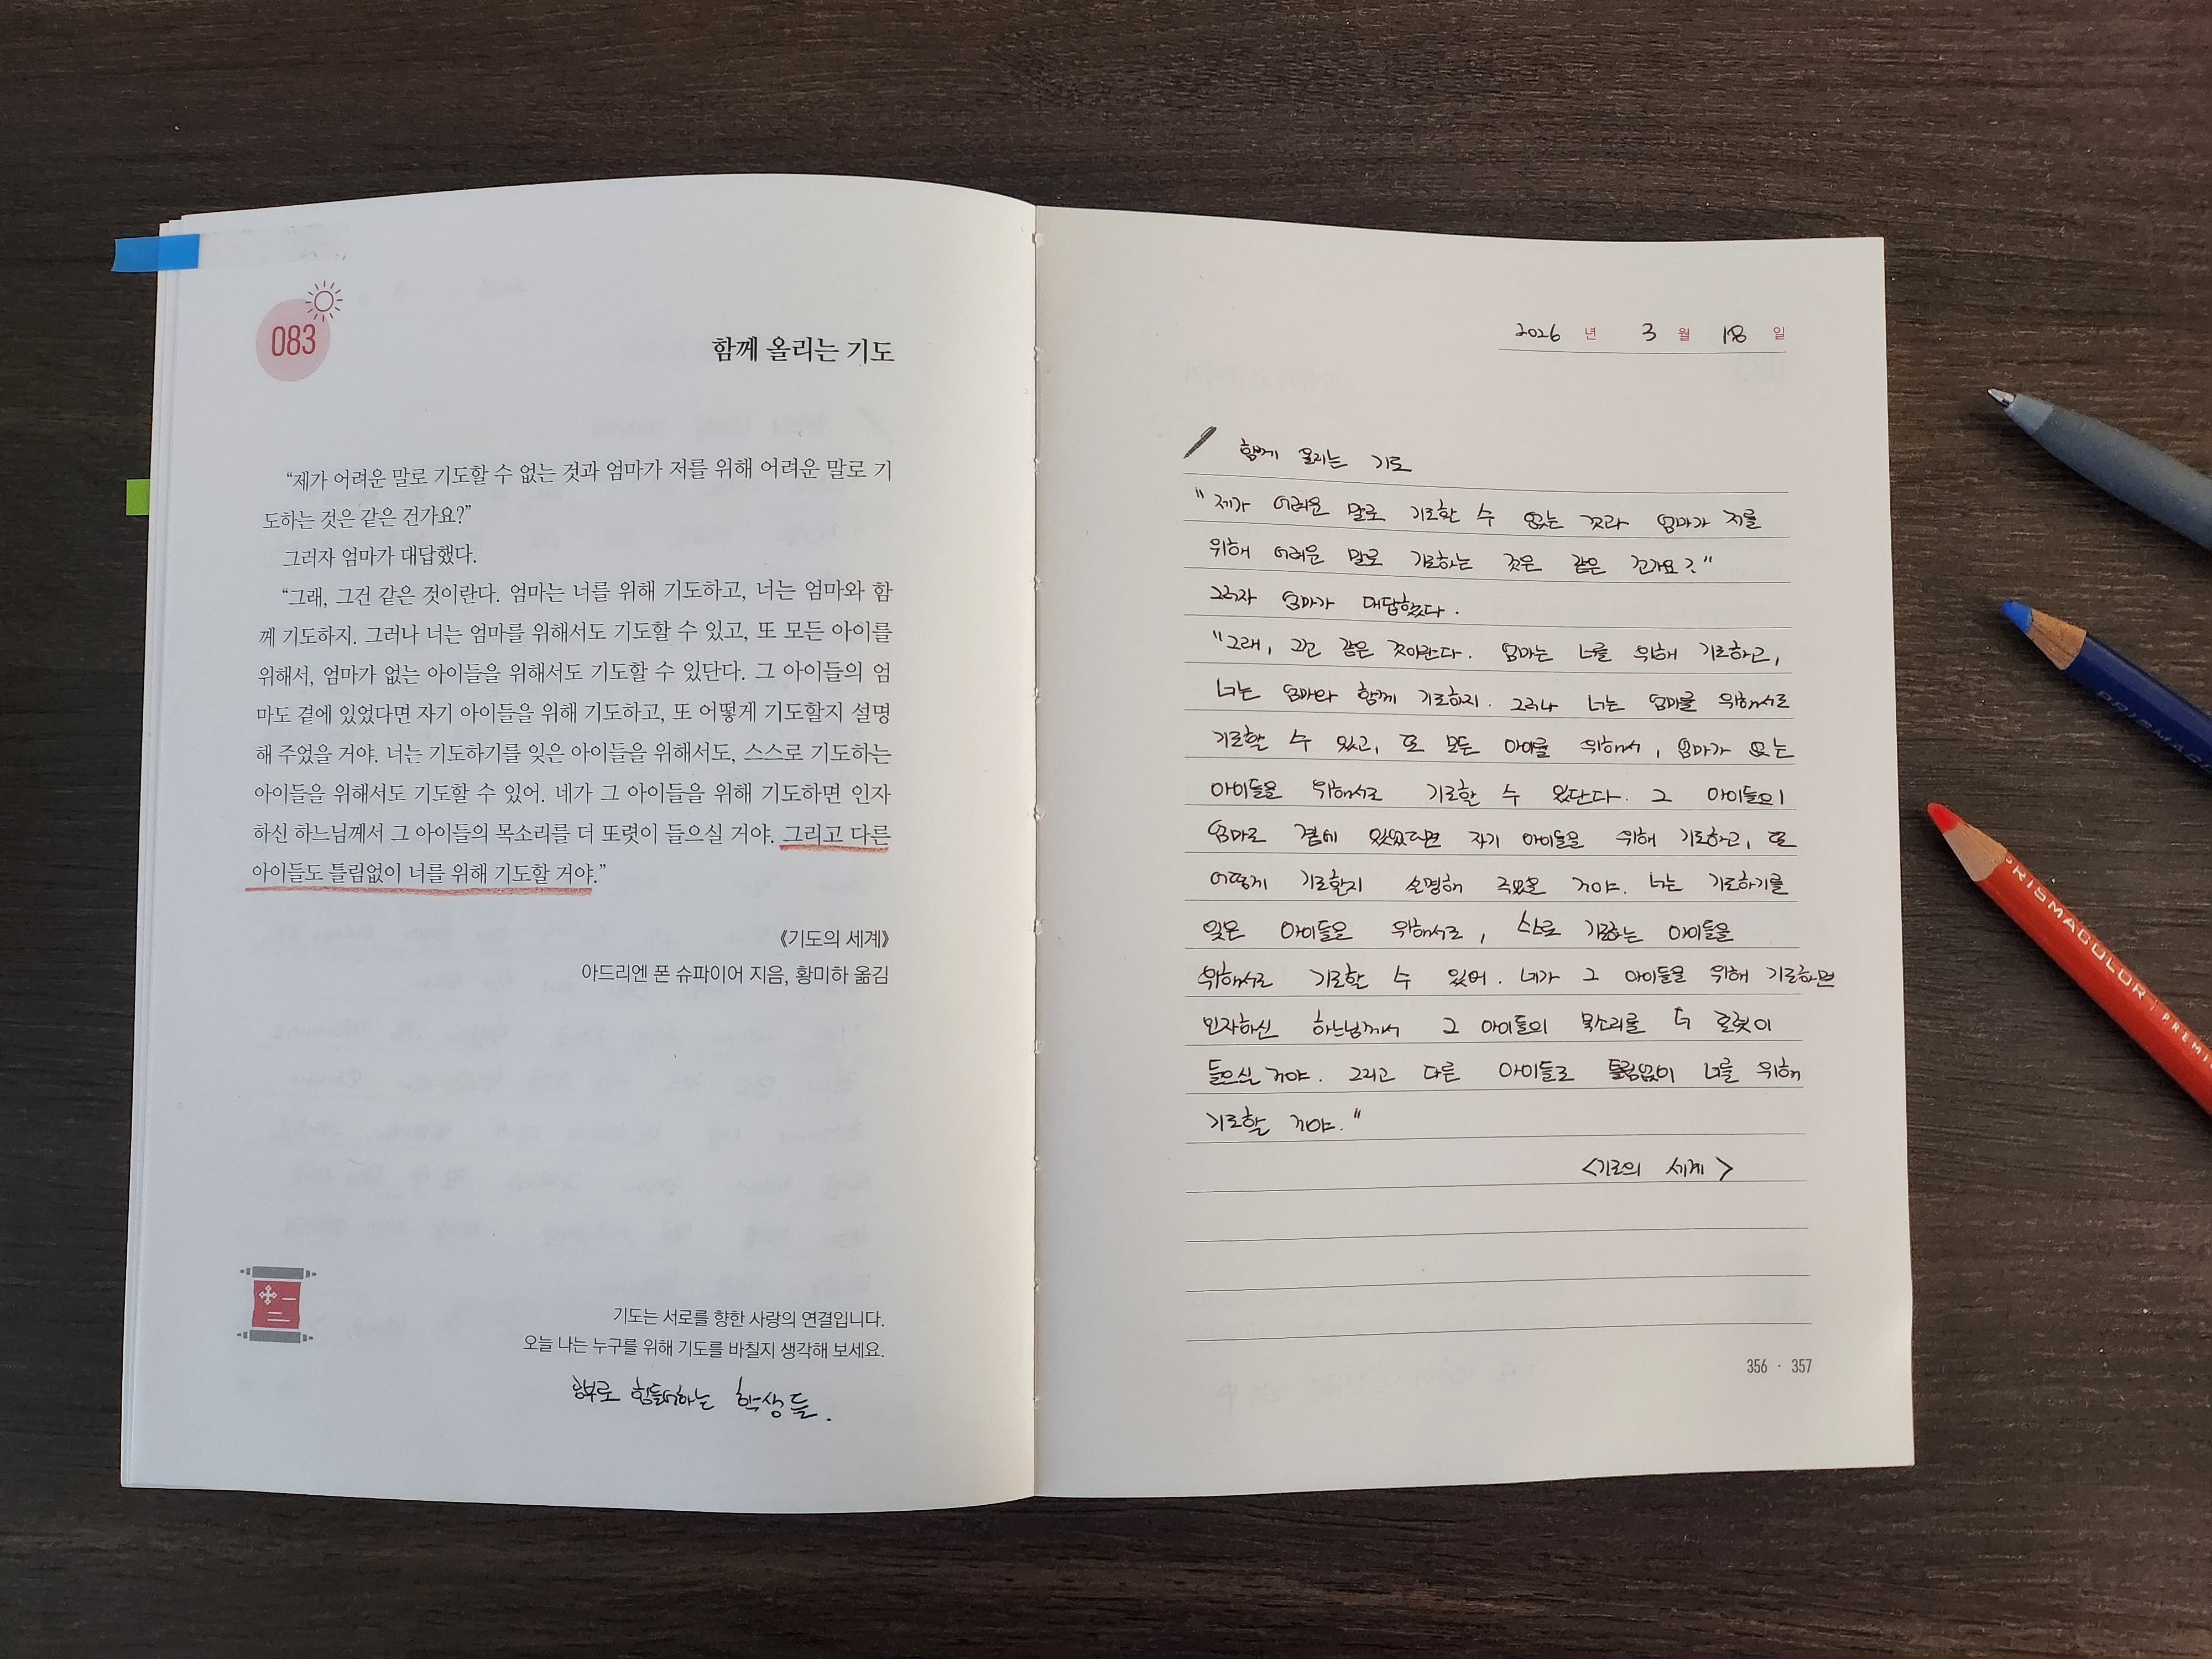 083
함께 올리는 기도
“제가 어려운 말로 기도할 수 없는 것과 엄마가 저를 위해 어려운 말로 기
도하는 것은 같은 건가요?”
그러자 엄마가 대답했다.
“그래, 그건 같은 것이란다. 엄마는 너를 위해 기도하고, 너는 엄마와 함
께 기도하지. 그러나 너는 엄마를 위해서도 기도할 수 있고, 또 모든 아이를
위해서, 엄마가 없는 아이들을 위해서도 기도할 수 있단다. 그 아이들의 엄
마도 곁에 있었다면 자기 아이들을 위해 기도하고, 또 어떻게 기도할지 설명
해 주었을 거야. 너는 기도하기를 잊은 아이들을 위해서도, 스스로 기도하는
아이들을 위해서도 기도할 수 있어. 네가 그 아이들을 위해 기도하면 인자
하신 하느님께서 그 아이들의 목소리를 더 또렷이 들으실 거야. 그리고 다른
아이들도 틀림없이 너를 위해 기도할 거야.”
《기도의 세계》
아드리엔 폰 슈파이어 지음, 황미하 옮김
기도는 서로를 향한 사랑의 연결입니다.
오늘 나는 누구를 위해 기도를 바칠지 생각해 보세요.
힘들어하는 학생들.
2026 년 3 월 18 일
함께 올리는 기도
"제가 어려운 말로 기도할 수 없는 것과 엄마가 저를
위해 어려운 말로 기도하는 것은 같은 건가요?"
그러자 엄마가 대답했다.
"그래, 그건 같은 것이란다. 엄마는 너를 위해 기도하고,
너는 엄마와 함께 기도하지. 그러나 너는 엄마를 위해서도
기도할 수 있고, 또 모든 아이를 위해서, 엄마가 없는
아이들을 위해서도 기도할 수 있단다. 그 아이들의
엄마도 곁에 있었다면 자기 아이들을 위해 기도하고, 또
어떻게 기도할지 설명해 주었을 거야. 너는 기도하기를
잊은 아이들을 위해서도, 스스로 기도하는 아이들을
위해서도 기도할 수 있어. 네가 그 아이들을 위해 기도하면
인자하신 하느님께서 그 아이들의 목소리를 더 또렷이
들으실 거야. 그리고 다른 아이들도 틀림없이 너를 위해
기도할 거야."
<기도의 세계>
356 · 357
PRISMACOLOR
PRISMACOLOR | PREMI